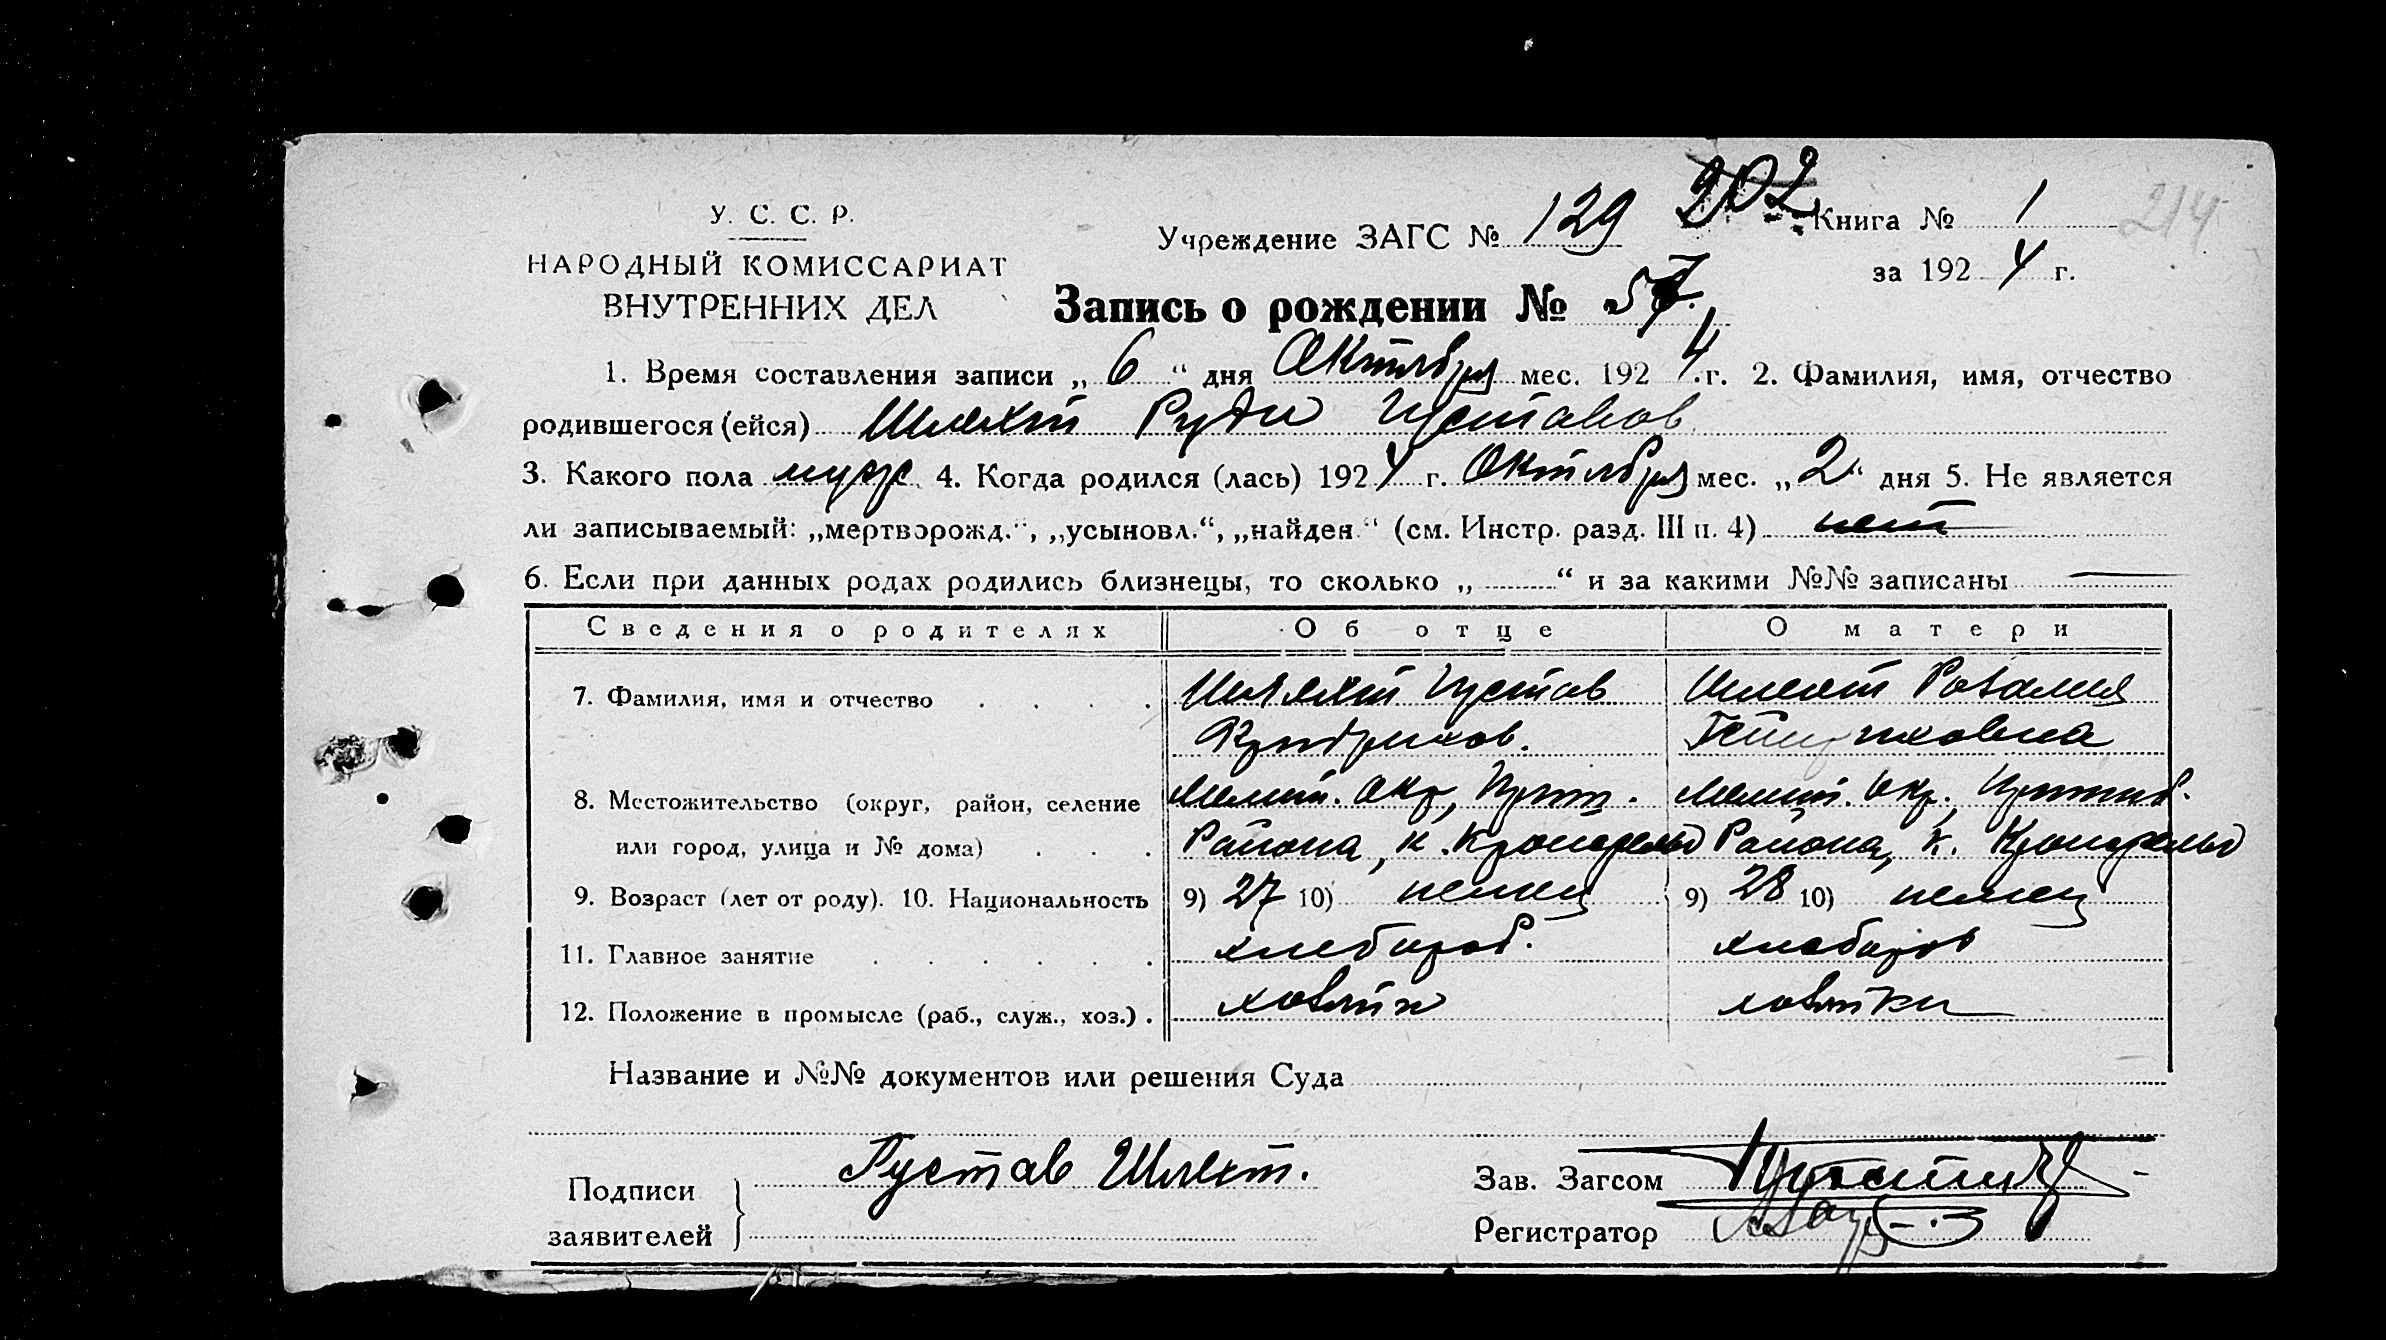 У. С. С. Р.
НАРОДНЫЙ КОМИССАРИАТ
ВНУТРЕННИХ ДЕЛ
Учреждение ЗАГС № 129 202 Книга № 1 214
за 1924 г.
Запись о рождении № 57.
1. Время составления записи „ 6 “ дня Октября мес. 1924 г. 2. Фамилия, имя, отчество
родившегося (ейся) Шлехт Руди Густавов
3. Какого пола муж. 4. Когда родился (лась) 1924 г. Октября мес. „ 2 “ дня 5. Не является
ли записываемый: „мертворожд.“, „усыновл.“, „найден“ (см. Инстр. разд. III п. 4) нет
6. Если при данных родах родились близнецы, то сколько „ “ и за какими №№ записаны —
Сведения о родителях Об отце О матери
7. Фамилия, имя и отчество Шлехт Густав Шлехт Розалия
8. Местожительство (округ, район, селение Мелит. окр, Мелит. окр.
или город, улица и № дома) Района, к. Кронсфельд Района, к. Кронсфельд
9. Возраст (лет от роду). 10. Национальность 9) 27 10) немец 9) 28 10) немец
11. Главное занятие хлебороб. хлебороб
12. Положение в промысле (раб., служ., хоз.) . хозяин хозяйка
Название и №№ документов или решения Суда
Подписи заявителей Густав Шлехт.
Зав. Загсом
Регистратор